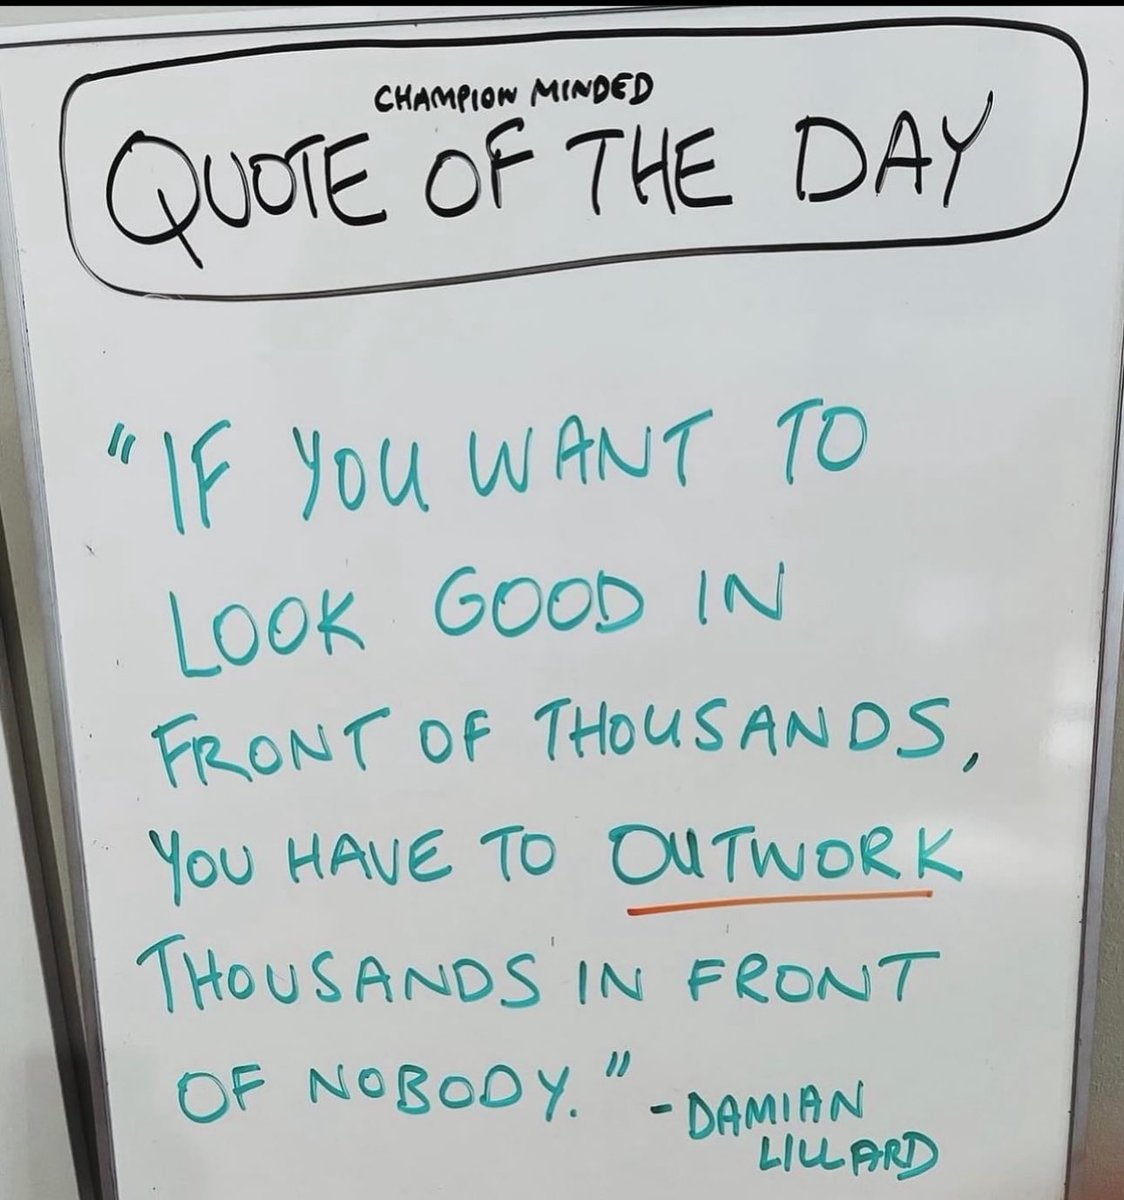 CHAMPION MINDED
QUOTE OF THE DAY
"IF YOU WANT TO
LOOK GOOD IN
FRONT OF THOUSANDS,
YOU HAVE TO OUTWORK
THOUSANDS IN FRONT
OF NOBODY."
-DAMIAN
LILLARD